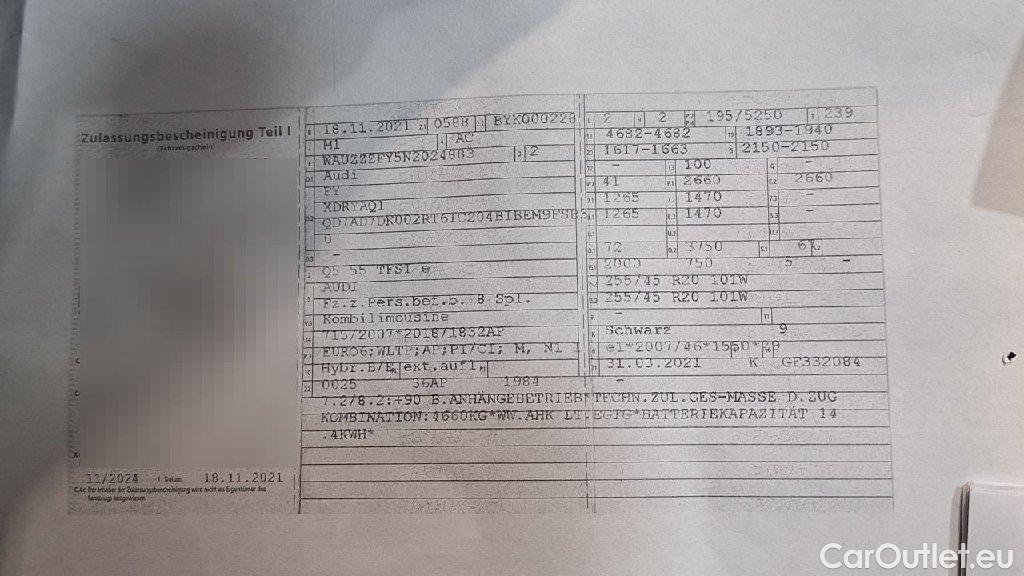 Zulassungsbescheinigung Teil I
(Fahrzeugschein)
18.11.2021 0588 BYK000228
M1 AC
WAUZZZFY5N2024983 2
Audi
FY
XDRYAQ1
0
-
Q5 55 TFSI e
AUDI
Fz.z.Pers.bef.b. 8 Spl.
Kombilimousine
715/2007*2018/1832AP
EURO6;WLTP;AP;PI/CI; M, N1 I
Hybr.B/E ext.aufl.
0025 36AP 1984
2 2 195/5250 239
4682-4682 1893-1940
1617-1663 2150-2150
- 100 -
41 2660 2660
1265 1470 -
1265 1470 -
72 3750 67
2000 750 5 -
255/45 R20 101W
255/45 R20 101W
-
Schwarz 9
e1*2007/46*1550*
31.03.2021 K GF332084
-
7.2/8.2:+90 B.ANHÄNGEBETRIEB*TECHN.ZUL.GES-MASSE D.ZUG
KOMBINATION:4660KG*WW.AHK LT.EGTG*BATTERIEKAPAZITÄT 14
.4KWH*
11/2024 18.11.2021
C.4c Der Inhaber der Zulassungsbescheinigung wird nicht als Eigentümer des
Fahrzeugs ausgewiesen.
CarOutlet.eu